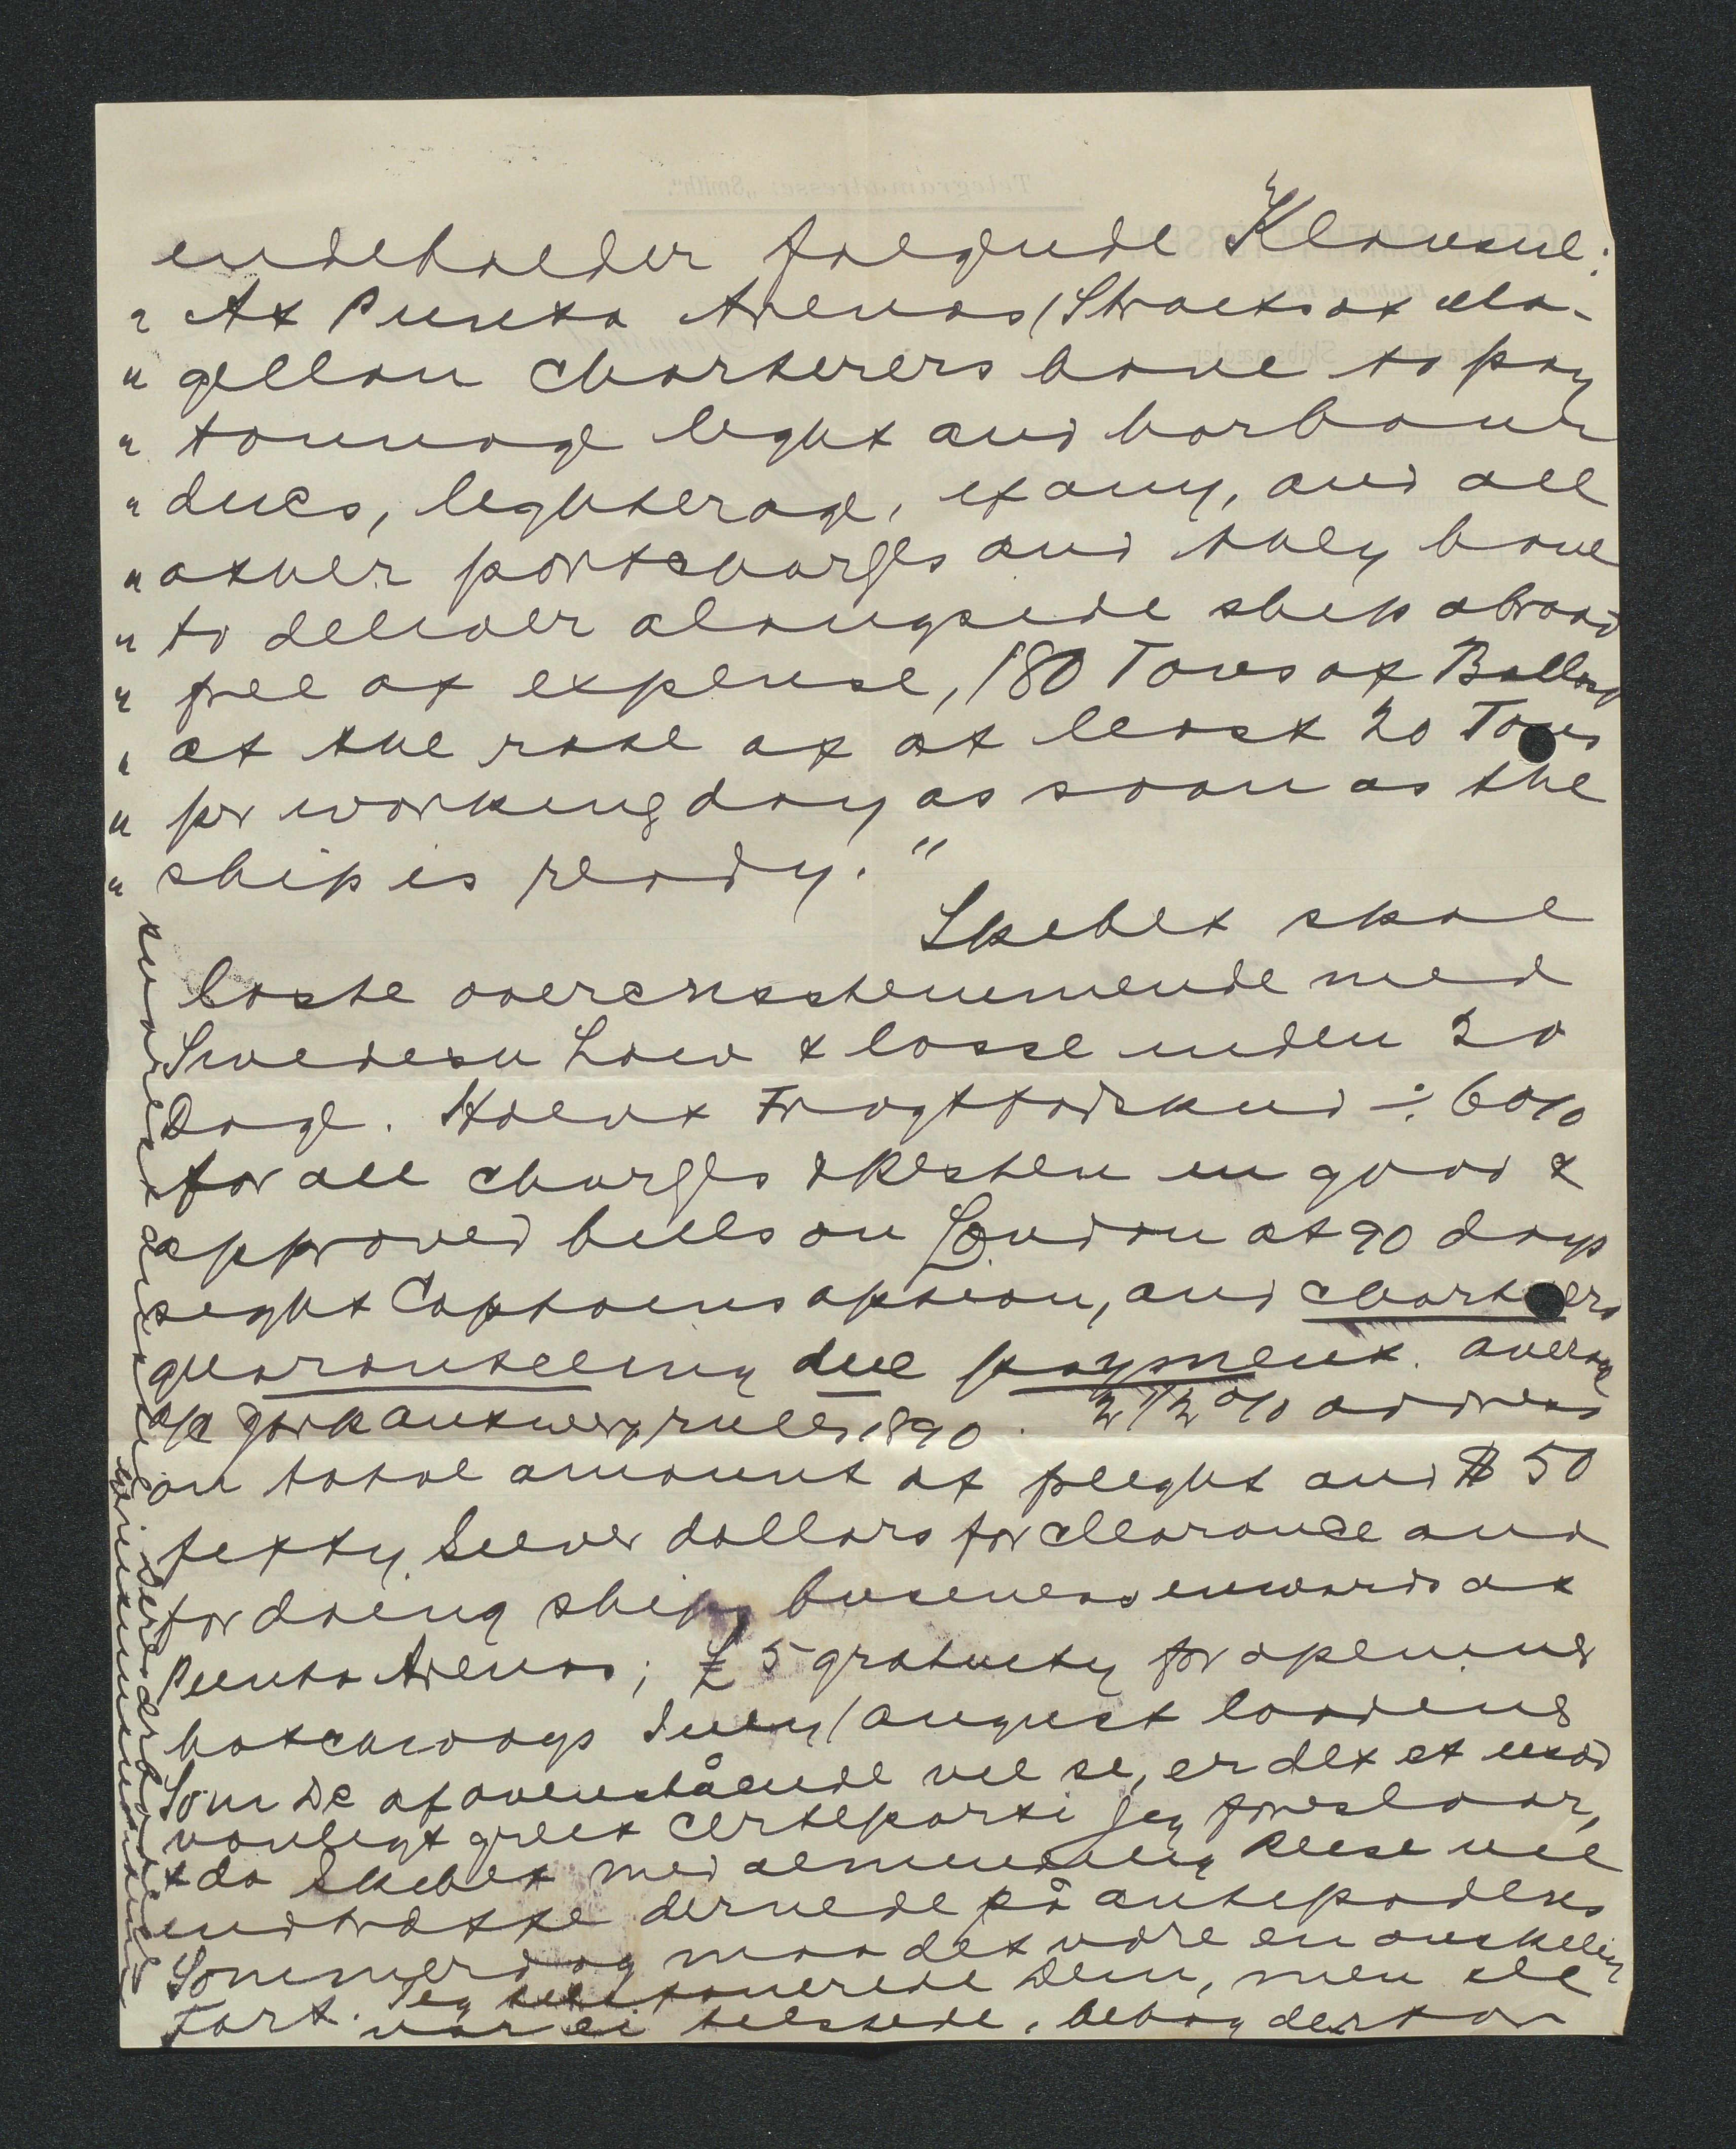 indeholder følgende Klausul:
" At Punta Arenas (Straets of Ma-
" gellan charterers have to pay
" tonnage light and harbour
" dues, lighterage, if any, and all
" other portscharges and they have
" to deliver alongside ship aboad
" free of expense, 180 Tons of Ballast
" at the rate of at least 20 Tons
" pr working day as soon as the
" ship is ready."
Skibet skal
laste overensstemmende med
Swedesn Law & losse inden 20
Dage. Halvt Fragtforskud ÷ 6%
for all charges & Resten in good &
approved bills on London at 90 days
sight Captains option, and charterers
guaranteeing due payment. average
pr York Antwerp rules 1890. 2 1/2 % address
on total amount of freight and $ 50
fifty Silver dollars for clearance and
for doing ships business inwards at
Punta Arenas; £ 5 gratuity for opening
hatchways July/August loading
Som De af ovenstående vil se, er det et usæd
vanligt greit Certeparti jeg foreslaar,
& da Skibet med almindelig Reise vil
indtræffe dernede på antipodens
Sommerdag maa det være en ønskelig
Fart. Jeg telefonerede Dem, men De
var ei tilstede, behag derfor
svare
Deres ærbødige